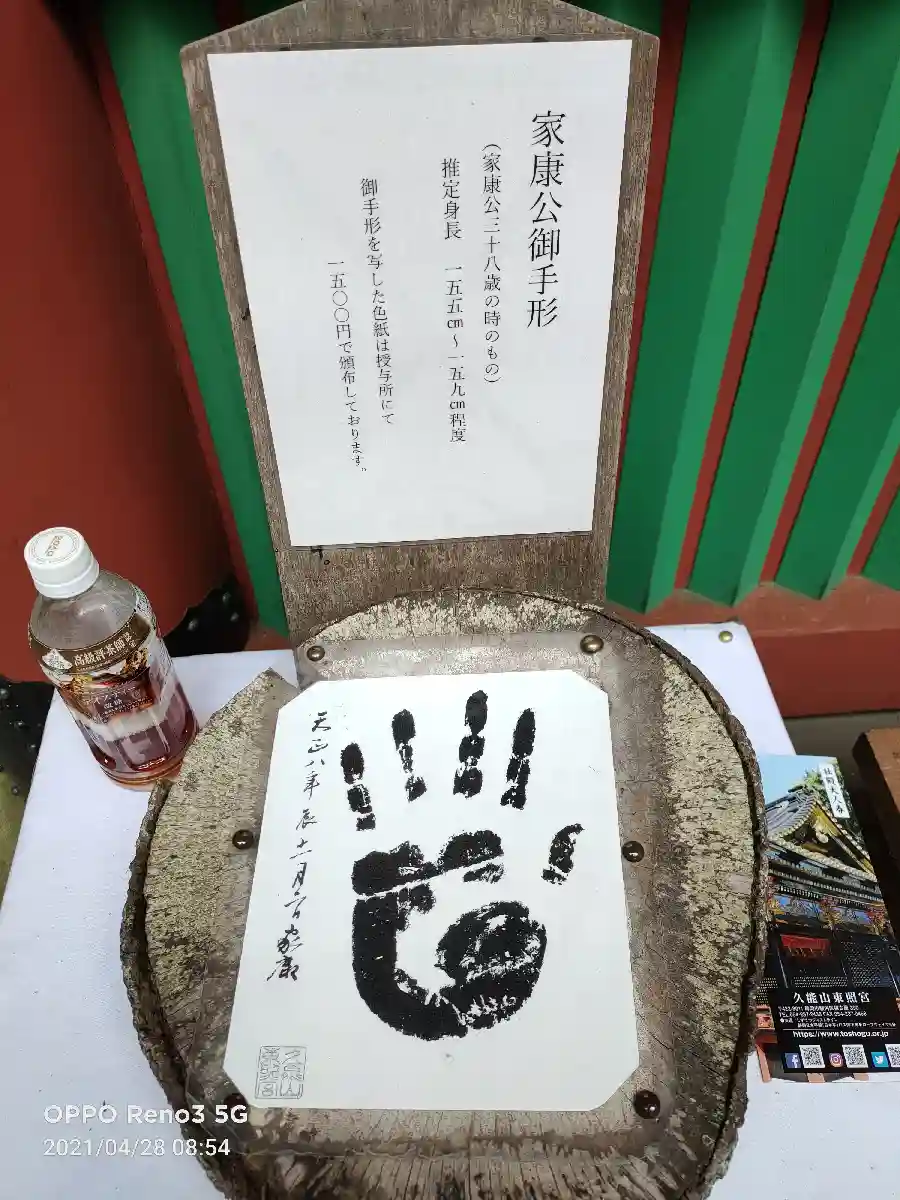 家康公御手形
(家康公三十八歳の時のもの)
推定身長 一五五㎝～一五九㎝程度
御手形を写した色紙は授与所にて
一五〇〇円で頒布しております。
高級評茶師
天正八年辰十二月六日家康
久能山東照宮
https://www.toshogu.or.jp
OPPO Reno3 5G
2021/04/28 08:54